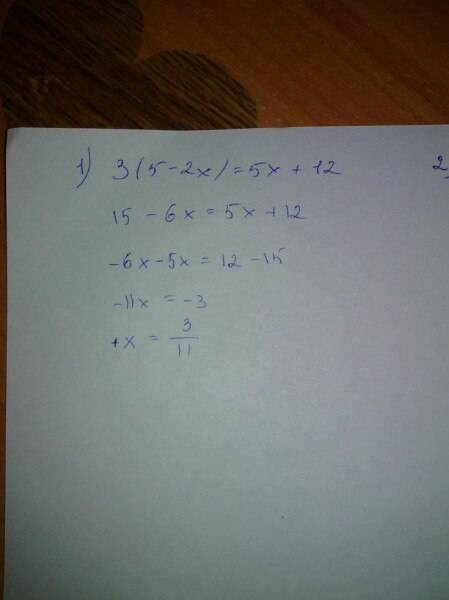 1) 3(5-2x)=5x+12
2)
15-6x=5x+12
-6x-5x=12-15
-11x=-3
+x=3/11